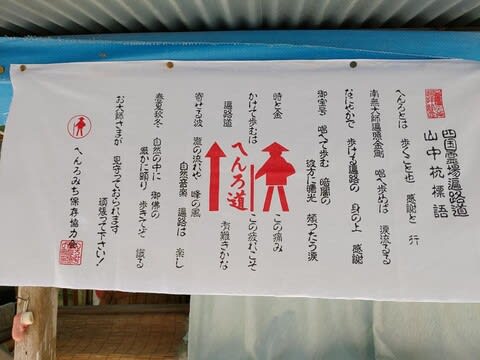 四国霊場遍路道
山中杭標語
へんろとは 歩くこと也 感謝と 行
南無大師遍照金剛 唱へ歩めば 涙流るる
なにやかで 歩ける遍路の 身の上 感謝
御宝号 唱へて歩む 暗闇の
彼方に燭光 頬つたう涙
時と金
かけて歩むは この痛み
遍路道 この疲れこそ
有難きかな
へんろ道
寄せる波 瀧の流れや 峰の風
自然音楽 遍路は 楽し
春夏秋冬 自然の中に 御佛の
慈かに頼り 歩きてぞ 識る
お大師さまが 見守っておられます
頑張って下さい!
へんろみち保存協力会